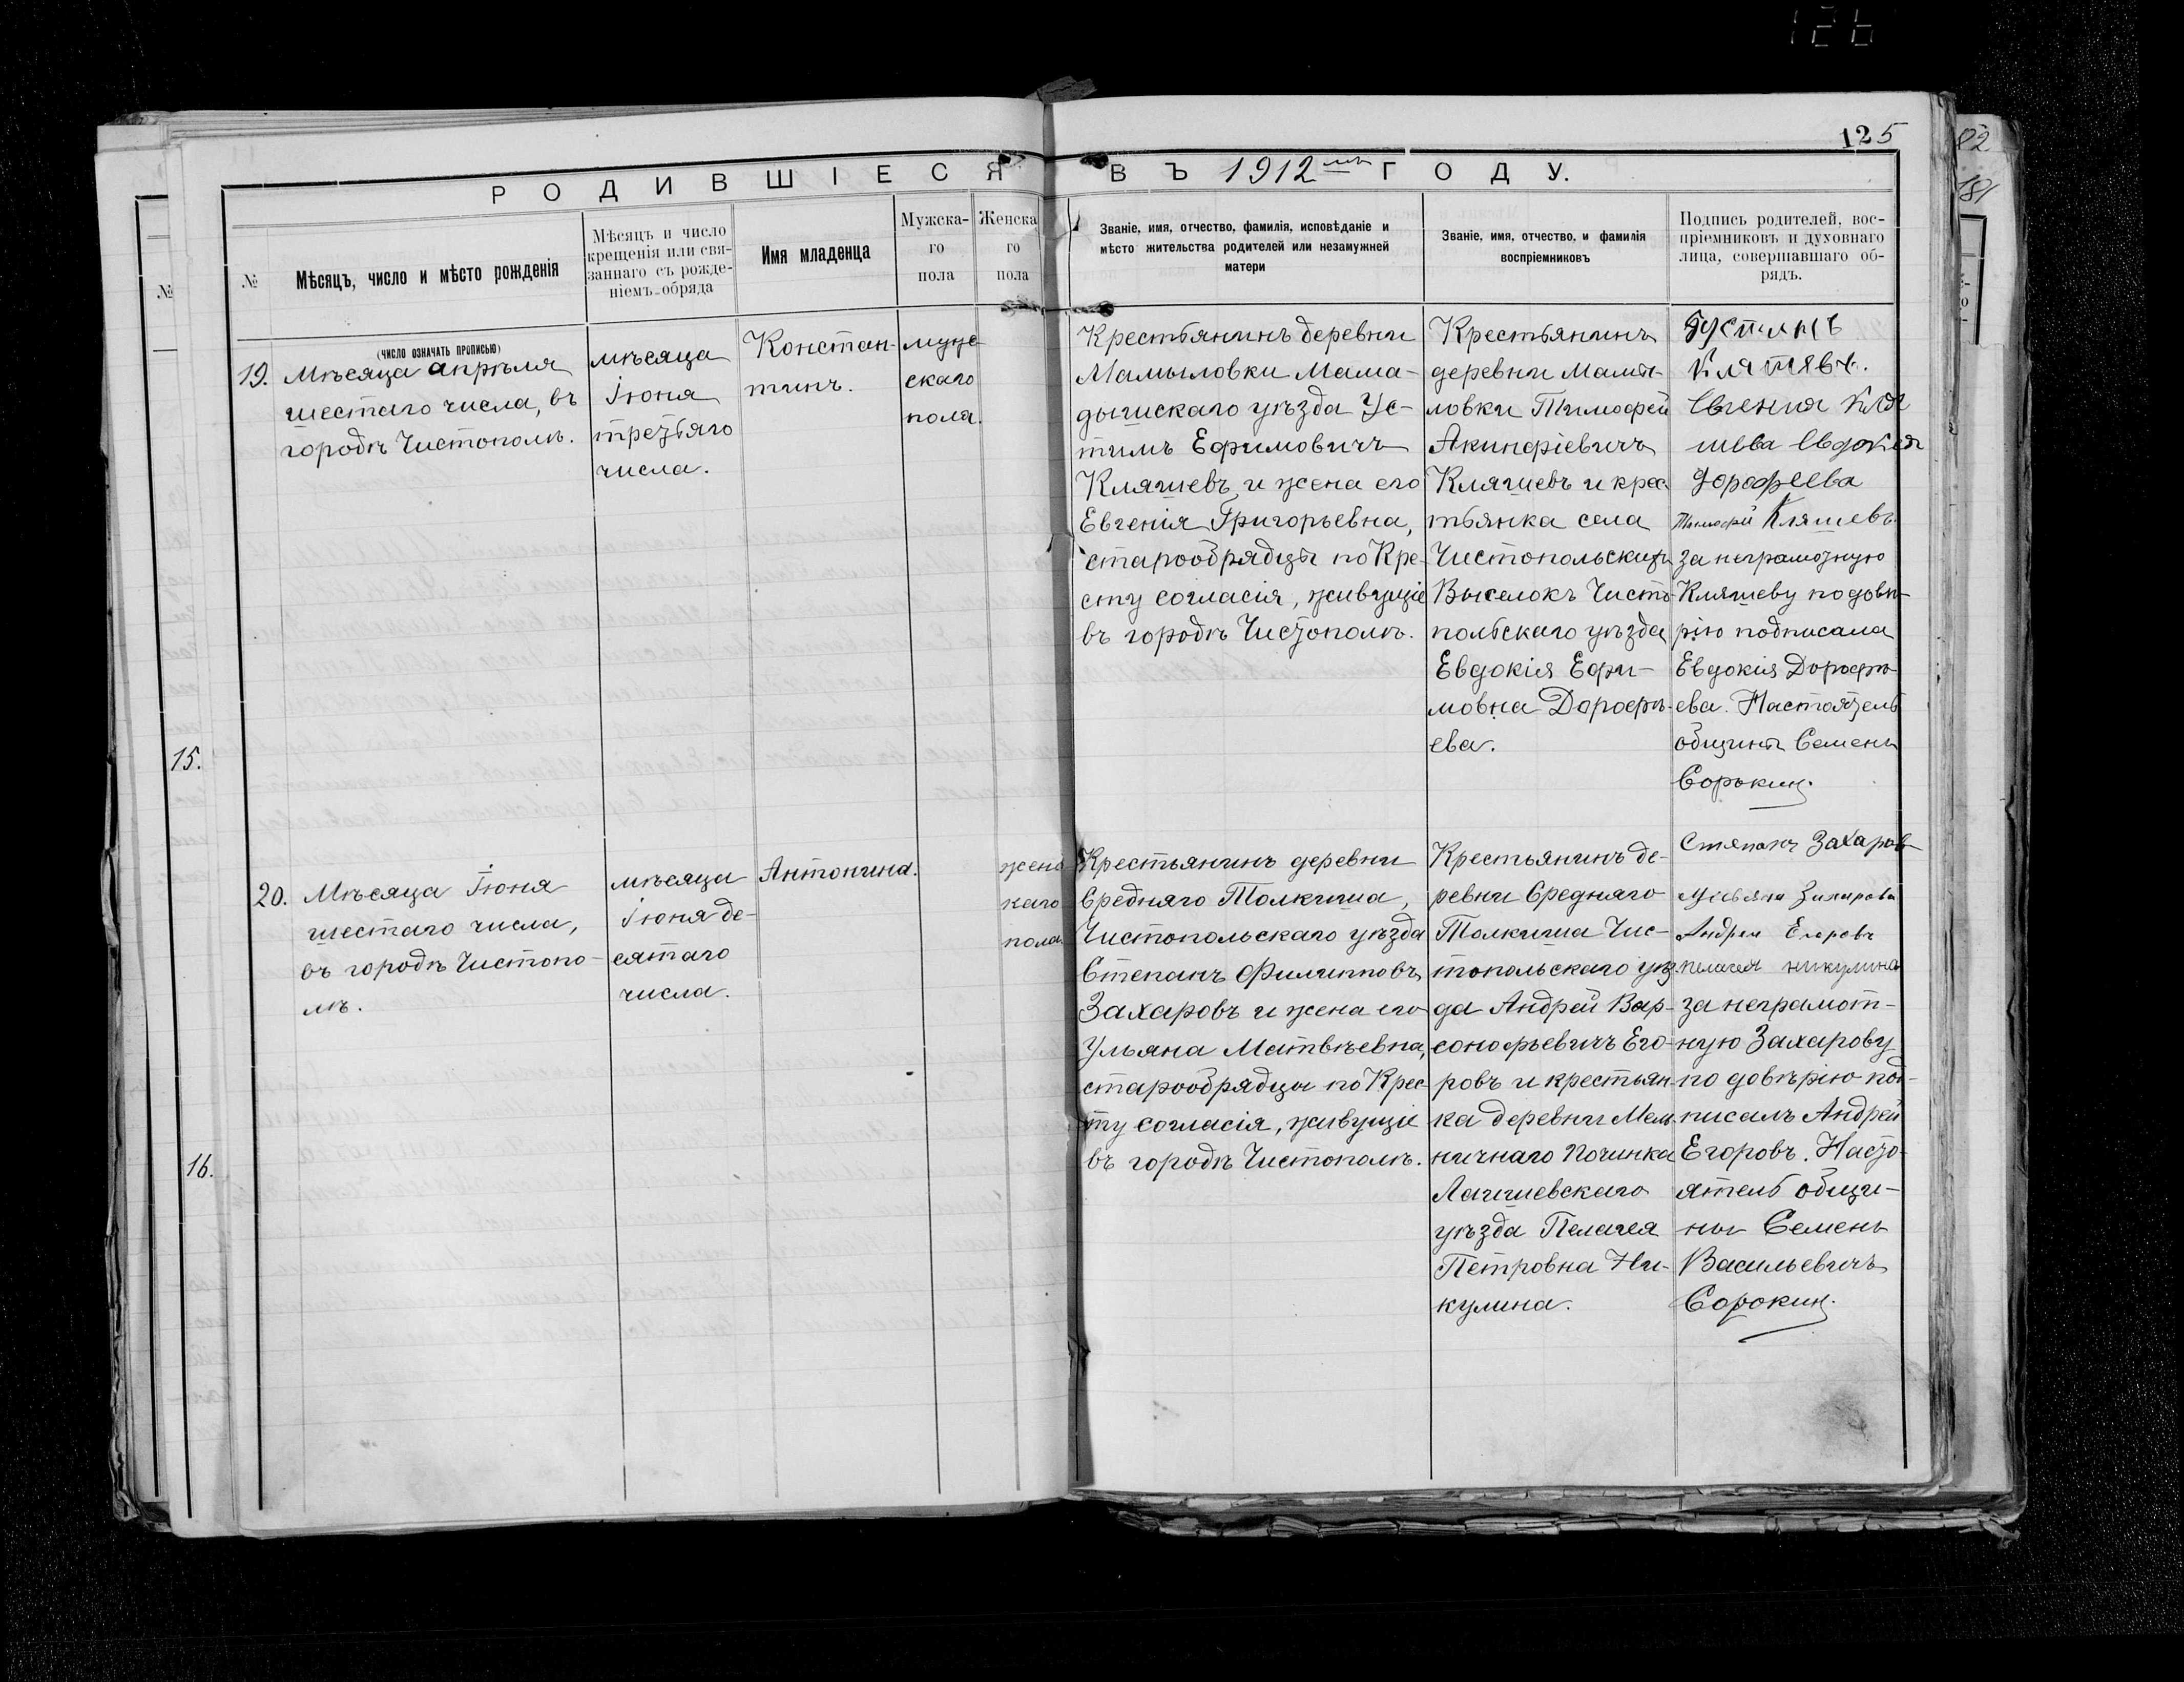 126
125
82
181
РОДИВШІЕСЯ ВЪ 1912мъ ГОДУ.
№
Мѣсяцъ, число и мѣсто рожденія
Мѣсяцъ и число
крещенія или свя-
заннаго съ рожде-
ніемъ обряда
Имя младенца
Мужска-
го
пола
Женска
го
пола
Званіе, имя, отчество, фамилія, исповѣданіе и
мѣсто жительства родителей или незамужней
матери
Званіе, имя, отчество, и фамилія
воспріемниковъ
Подпись родителей, вос-
пріемниковъ и духовнаго
лица, совершавшаго об-
рядъ.
№
(число означать прописью)
19.
Мѣсяца апрѣля
шестаго числа, въ
городѣ Чистополѣ.
мѣсяца
Іюня
третьяго
числа.
Констан-
тинъ.
муже
скаго
пола.
Крестьянинъ деревни
Мамыловки Мама-
дышскаго уѣзда Ус-
тимъ Ефимовичъ
Кляшевъ и жена его
Евгенія Григорьевна,
старообрядцы по Кре-
сту согласія, живущіе
въ городѣ Чистополѣ.
Крестьянинъ
деревни Мамы-
ловки Тимофей
Акинфіевичъ
Кляшевъ и крес
тьянка села
Чистопольскихъ
Выселокъ Чисто-
польскаго уѣзда
Евдокія Ефи-
мовна Дорофѣ-
ева.
Евгения Кля
шева Евдокея
Дорофеева
Тимофей Кляшевъ
за неграмотную
Кляшеву по довѣ-
рію подписала
Евдокія Дорофѣ-
ева. Настоятель
общины Семенъ
Сорокин.
15.
16.
20.
Мѣсяца Іюня
шестаго числа,
въ городѣ Чистопо-
лѣ.
мѣсяца
Іюня де-
сятаго
числа.
Антонина.
женс
каго
пола.
Крестьянинъ деревни
Средняго Толкиша,
Чистопольскаго уѣзда
Степанъ Филипповъ
Захаровъ и жена его
Ульяна Матвѣевна,
старообрядцы по Крес-
ту согласія, живущіе
въ городѣ Чистополѣ.
Крестьянинъ де-
ревни Средняго
Толкиша Чис-
топольскаго уѣз-
да Андрей Вар-
сонофьевичъ Его-
ровъ и крестьян-
ка деревни Мель-
ничнаго Починка
Лаишевскаго
уѣзда Пелагея
Петровна Ни-
кулина.
Стяпанъ Захаров
Ульяна Захарова
Андрей Егоровъ
пелагея никулина
за неграмот-
ную Захарову
по довѣрію под-
писалъ Андрей
Егоровъ. Насто-
ятель общи-
ны Семенъ
Васильевичъ
Сорокин.